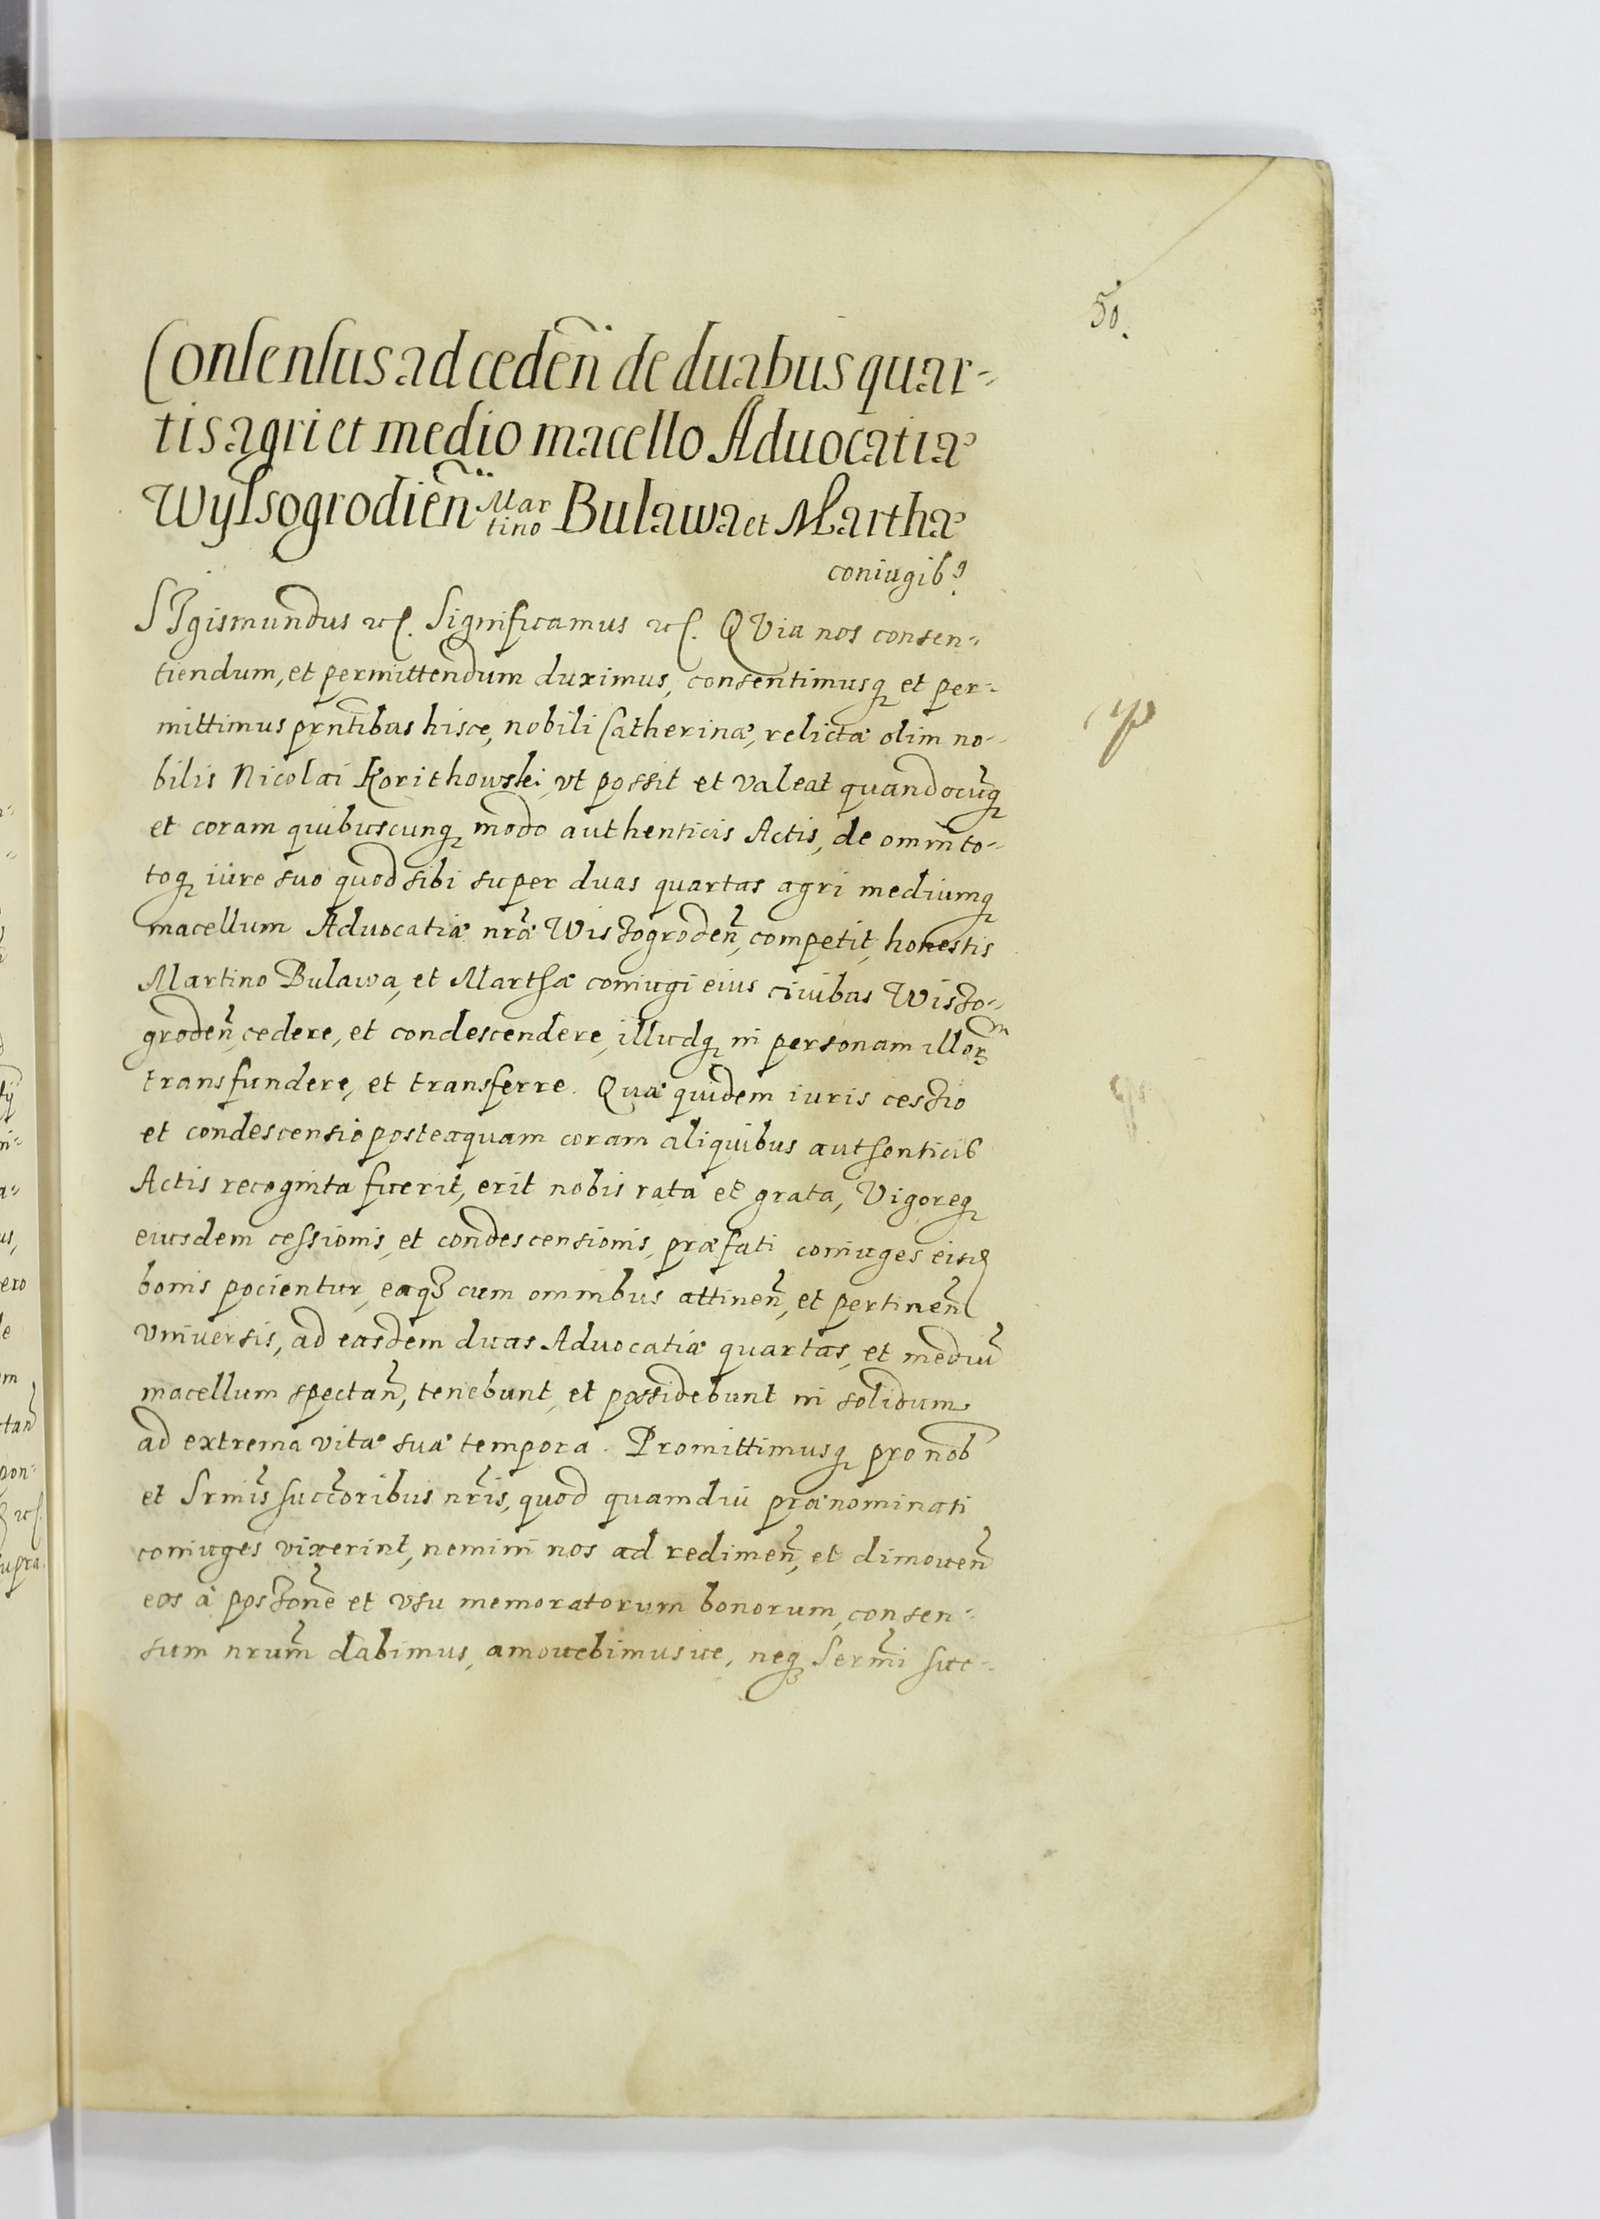 50.
Consensus ad ceden̄ de duabus quar-
tis agri et medio macello Aduocatiæ
Wyssogrodien̄ Martino Bulawa et Marthæ
coniugib9
SIgismundus etc. Significamus etc. QVia nos consen-
tiendum, et permittendum duximus, consentimusq; et per-
mittimus prn̄tibus hisce, nobili Catherinæ, relictæ olim no-
bilis Nicolai Korithowski, vt possit et valeat quandocūq;
et coram quibuscunq; modo authenticis Actis, de omni to-
toq; iure suo quod sibi super duas quartas agri mediumq;
macellum Aduocatiæ nr̄æ Wissogroden̄, competit, honestis
Martino Bulawa, et Marthæ coniugi eius ciuibus Wisso-
groden̄, cedere, et condescendere, illudq; in personam illorm
transfundere, et transferre. Quæ quidem iuris cessio
et condescensio posteaquam coram aliquibus authenticis
Actis recognita fuerit, erit nobis rata et grata, Vigoreq;
eiusdem cessionis, et condescensionis, præfati coniuges eisd
bonis pocientur, eaq3 cum omnibus attinen̄, et pertinen̄
vniuersis, ad easdem duas Aduocatiæ quartas, et mediū
macellum spectan̄, tenebunt, et possidebunt in solidum
ad extrema vitæ suæ tempora. Promittimusq; pro nob
et Srmīs succ̄oribus nr̄is, quod quamdiu prænominati
coniuges vixerint, nemini nos ad redimen̄, et dimouen̄
eos à possōne et vsu memoratorum bonorum, consen-
sum nrum̄ dabimus, amouebimusue, neq; Serm̄i suc-